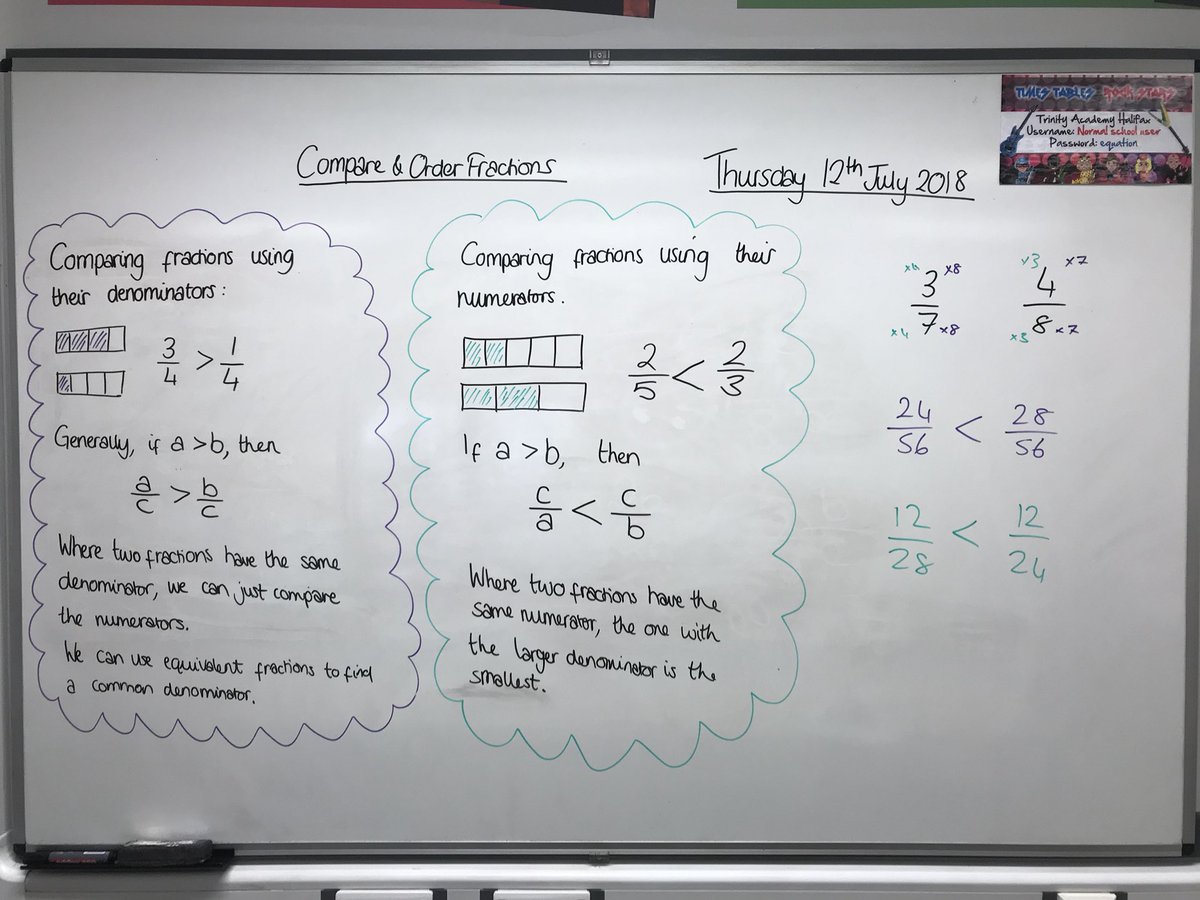 TIMES TABLES ROCK STARS
Trinity Academy Halifax
Username: Normal school user
Password: equation
Compare & Order Fractions
Thursday 12th July 2018
Comparing fractions using
their denominators:
3/4 > 1/4
Generally, if a > b, then
a/c > b/c
Where two fractions have the same
denominator, we can just compare
the numerators.
We can use equivalent fractions to find
a common denominator.
Comparing fractions using their
numerators.
2/5 < 2/3
If a > b, then
c/a < c/b
Where two fractions have the
same numerator, the one with
the larger denominator is the
smallest.
×4 ×8 ×3 ×7
3/7 4/8
×4 ×8 ×3 ×7
24/56 < 28/56
12/28 < 12/24